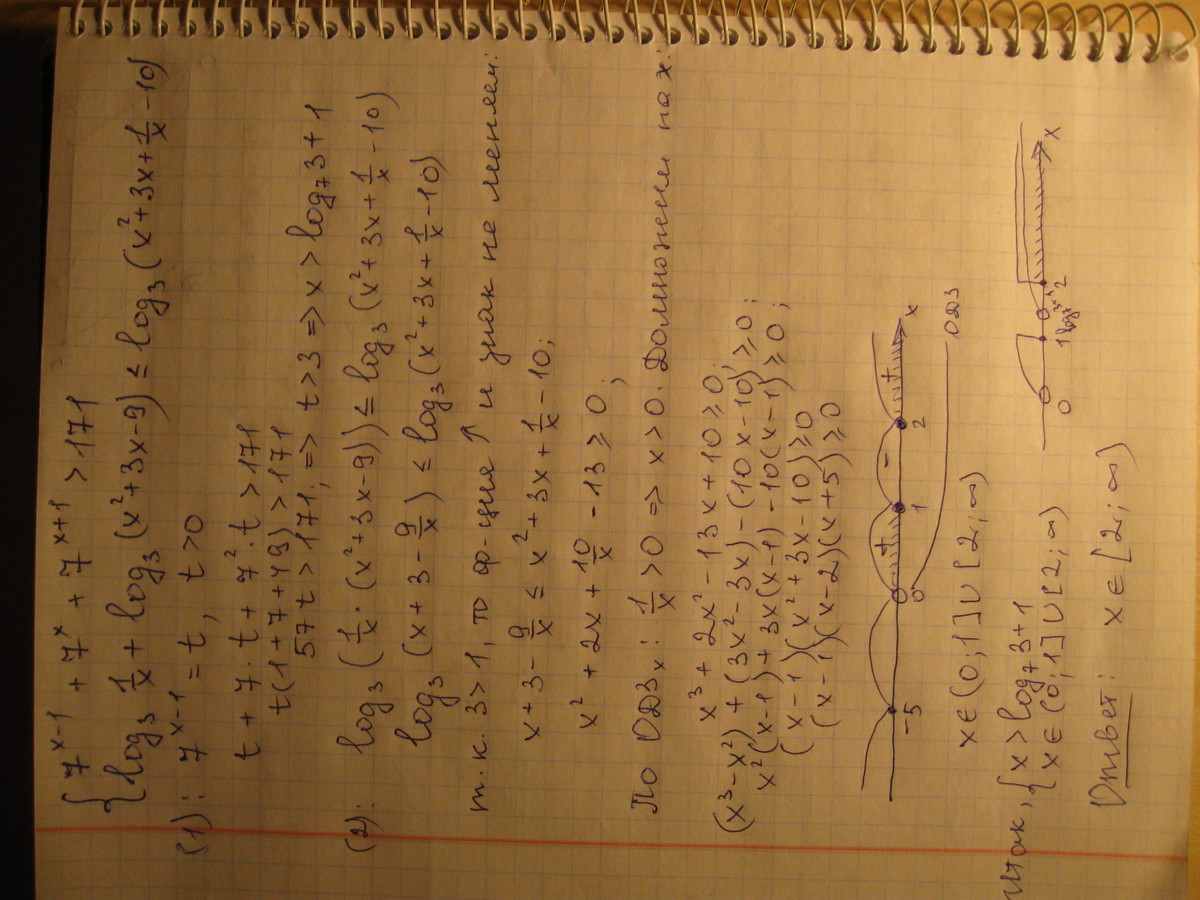 { 7^(x-1) + 7^x + 7^(x+1) > 171
log₃ 1/x + log₃ (x²+3x-9) ≤ log₃ (x²+3x+1/x-10)
(1): 7^(x-1) = t, t>0
t + 7·t + 7²·t > 171
t(1+7+49) > 171
57t > 171; => t>3 => x > log₇3+1
(2): log₃ (1/x · (x²+3x-9)) ≤ log₃ (x²+3x+1/x-10)
log₃ (x+3-9/x) ≤ log₃ (x²+3x+1/x-10)
т.к. 3>1, то ф-ция ↑ и знак не меняем:
x+3-9/x ≤ x²+3x+1/x-10;
x²+2x+10/x-13 ≥ 0;
По ОДЗₓ: 1/x >0 => x>0. Домножени на x:
x³+2x²-13x+10≥0;
(x³-x²)+(3x²-3x)-(10x-10)≥0;
x²(x-1)+3x(x-1)-10(x-1)≥0;
(x-1)(x²+3x-10)≥0
(x-1)(x-2)(x+5)≥0
+ - + x
-5 0 1 2 ОДЗ
x∈(0;1]∪[2;∞)
Итак, { x > log₇3+1
x∈(0;1]∪[2;∞)
0 1 log₇3+1 2 x
Ответ: x∈[2;∞)